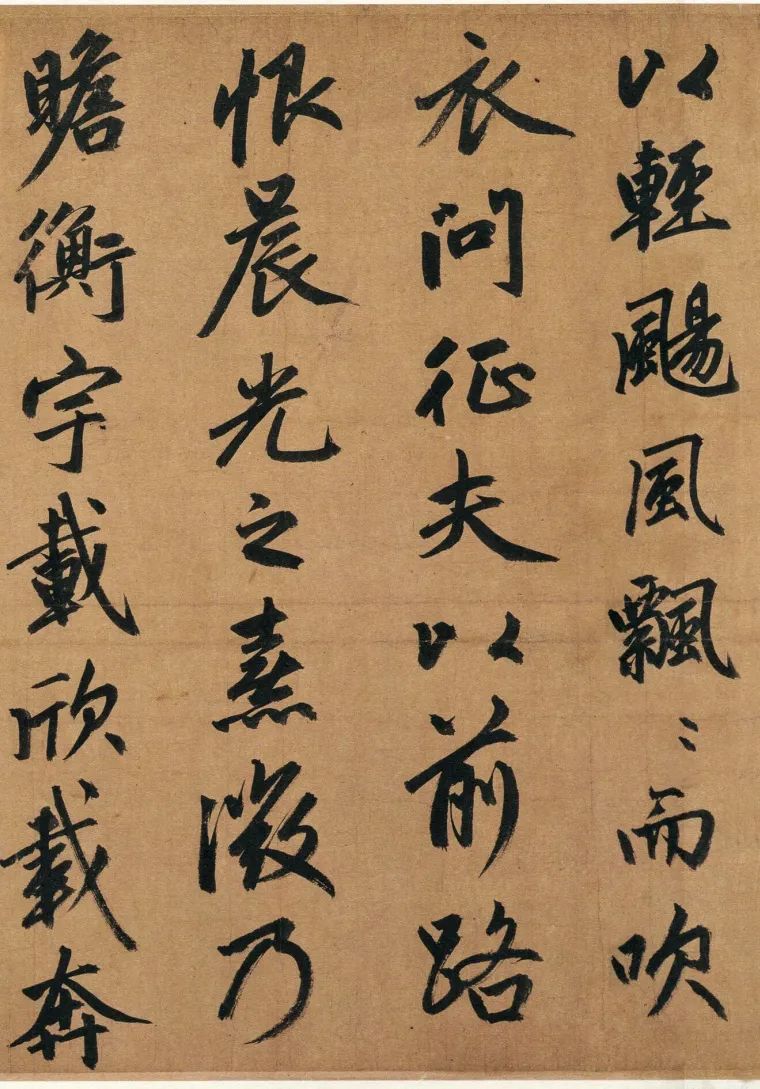 以輕颺風飄〻而吹
衣問征夫以前路
恨晨光之熹微乃
瞻衡宇載欣載奔